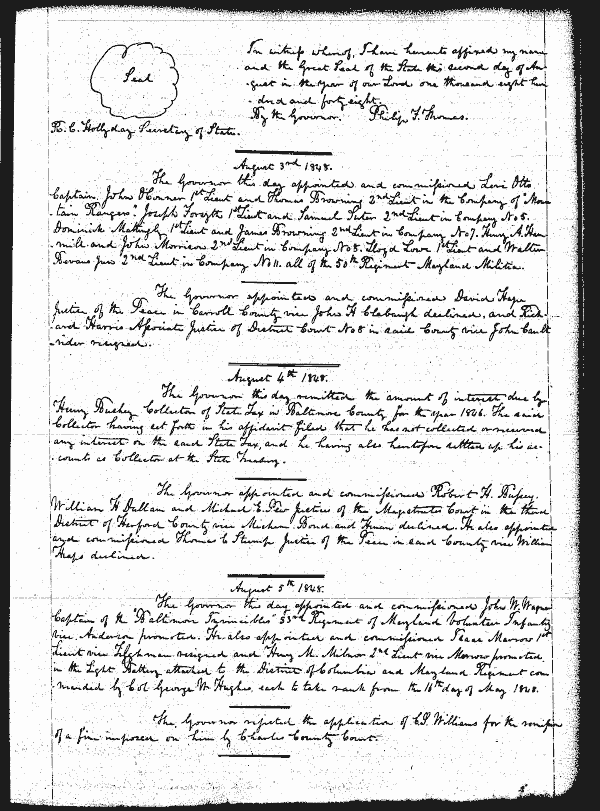 In witness whereof, I have hereunto affixed my name
and the Great Seal of the State this second day of Au-
Seal
-gust in the year of our Lord one thousand eight hun
-dred and forty eight.
By the Governor. Philip F. Thomas.
R. C. Hollyday Secretary of State.
August 3rd 1848.
The Governor this day appointed and commissioned Levi Otto
Captain, John O'Conner 1st Lieut and Thomas Browning 2nd Lieut in the Company of "Moun
-tain Rangers." Joseph Forsyth 1st Lieut and Samuel 2nd Lieut in Company No 5.
Dominick Mattingly 1st Lieut and James Browning 2nd Lieut in Company No 7. Henry A. Ham
mill and John Morrison 2nd Lieut in Company No 8. Lloyd Lowe 1st Lieut and Walter
Bevans Jur 2nd Lieut in Company No 11. all of the 50th Regiment Maryland Militia.
The Governor appointed and commissioned David
Justice of the Peace in Carroll County vice John H Clabaugh declined, and Rich-
-ard Harris Associate Justice of District Court No 8 in said County vice John Cault
-rider resigned.
August 4th 1848.
The Governor this day remitted the amount of interest due by
Henry Bushey Collector of State Tax in Baltimore County for the year 1846. The said
Collector having set forth in his affidavit filed that he has not collected or received
any interest on the said State Tax, and he having also heretofore settled up his ac-
-counts as Collector at the State Treasury.
The Governor appointed and commissioned Robert H.
William H Dallam and Michael E. Justices of the Magistrates Court in the third
District of Harford County vice Bond and declined. He also appointed
and commissioned Thomas C Stump Justice of the Peace in said County vice William
declined.
August 5th 1848.
The Governor this day appointed and commissioned John W. Wagner
Captain of the "Baltimore Invincibles" 53rd Regiment of Maryland Volunteer Infantry
vice Anderson promoted. He also appointed and commissioned Isaac Marrow 1st
Lieut vice Tilghman resigned and Henry M. Milnor 2nd Lieut vice Marrow promoted,
in the Light Battery attached to the District of Columbia and Maryland Regiment com
-manded by Col George W. Hughes, each to take rank from the 16th day of May 1848.
The Governor rejected the application of Williams for the remission
of a fine imposed on him by Charles County Court.